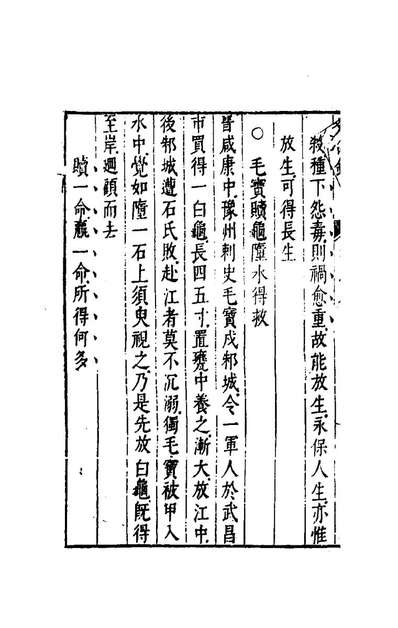 殺種下怨毒則禍愈重故能放生永保人生亦惟
放生可得長生
○毛寶贖龜墮水得救
晉咸康中豫州刺史毛寶戍邾城令一軍人於武昌
市買得一白龜長四五寸置甕中養之漸大放江中
後邾城遭石氏敗赴江者莫不沉溺獨毛寶被甲入
水中覺如墮一石上須臾視之乃是先放白龜旣得
至岸迴顧而去
贖一命靈一命所得何多